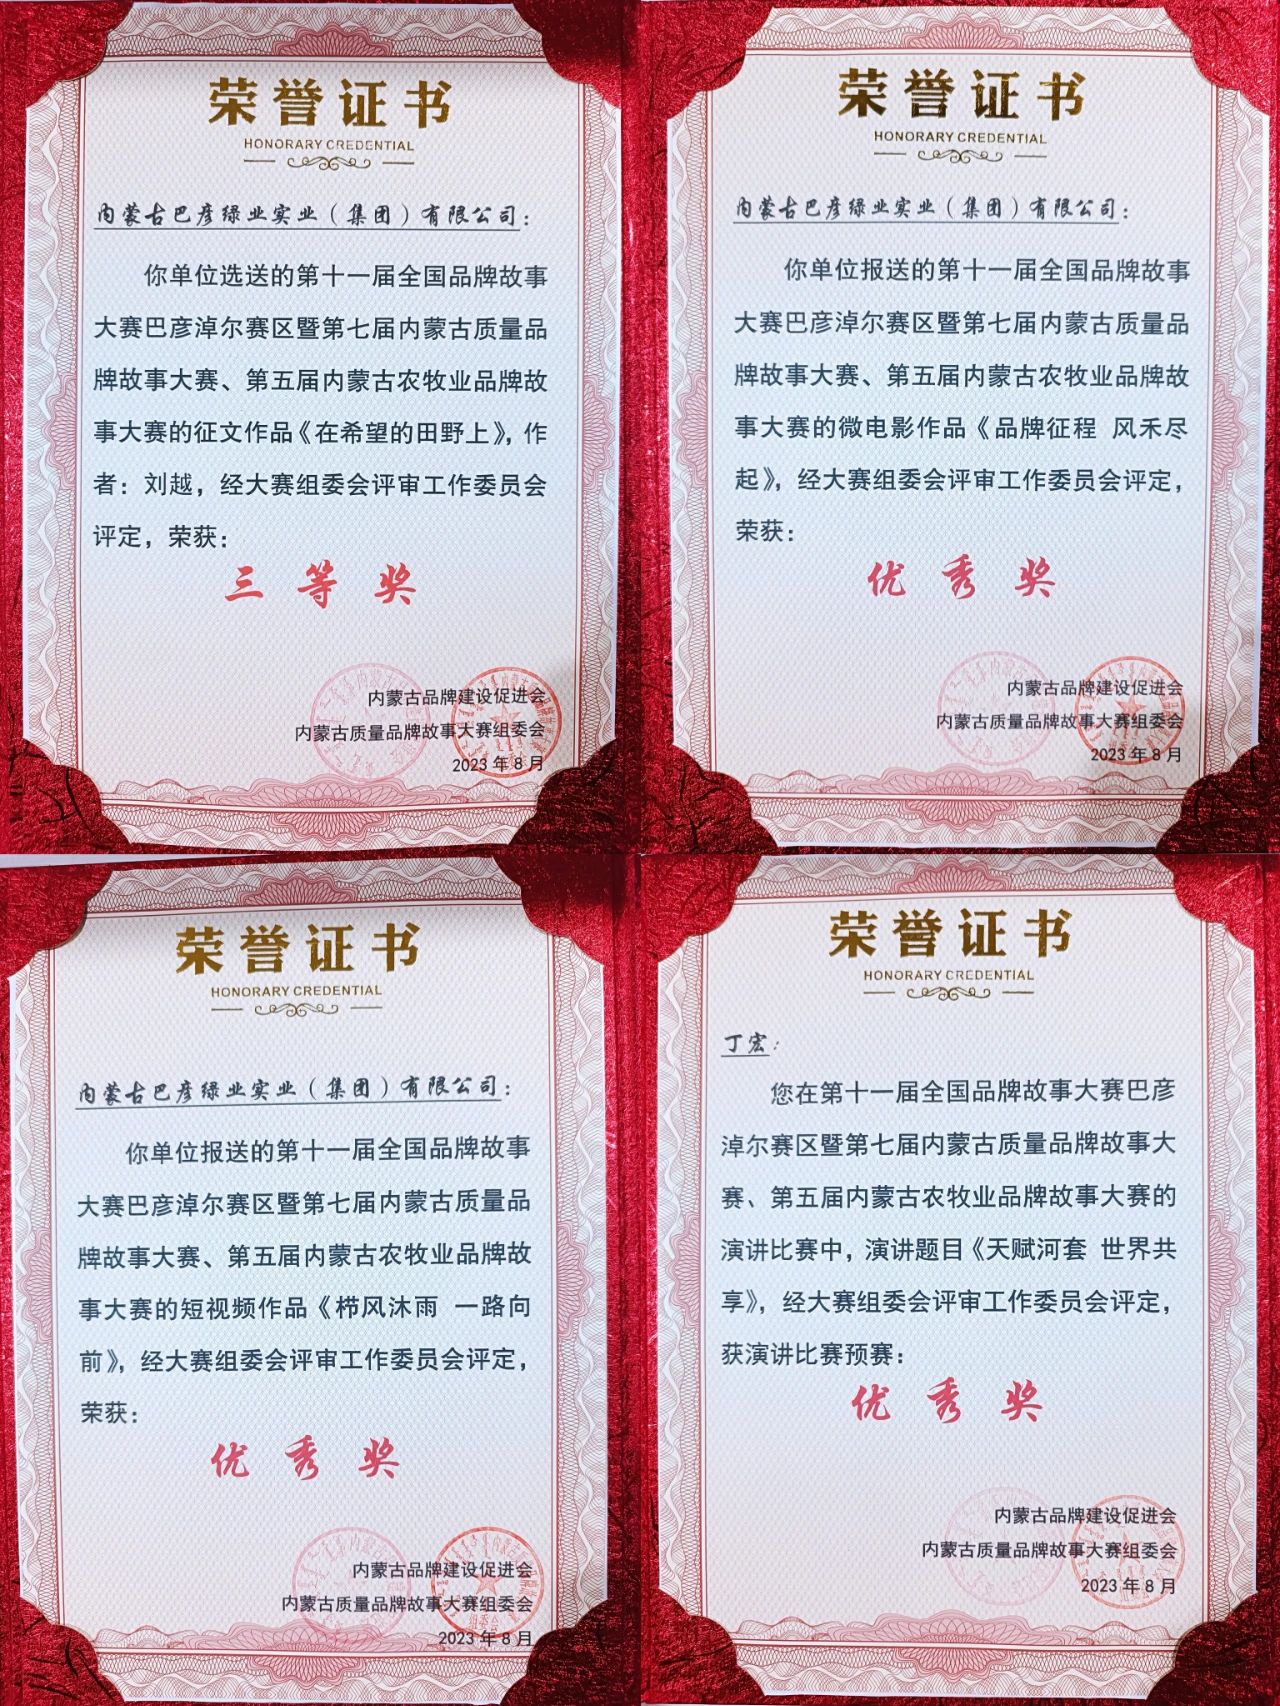 荣誉证书
HONORARY CREDENTIAL
内蒙古巴彦绿业实业（集团）有限公司：
你单位选送的第十一届全国品牌故事
大赛巴彦淖尔赛区暨第七届内蒙古质量品
牌故事大赛、第五届内蒙古农牧业品牌故
事大赛的征文作品《在希望的田野上》，作
者：刘越，经大赛组委会评审工作委员会
评定，荣获：
三等奖
内蒙古品牌建设促进会
内蒙古质量品牌故事大赛组委会
2023年8月
荣誉证书
HONORARY CREDENTIAL
内蒙古巴彦绿业实业（集团）有限公司：
你单位报送的第十一届全国品牌故事
大赛巴彦淖尔赛区暨第七届内蒙古质量品
牌故事大赛、第五届内蒙古农牧业品牌故
事大赛的微电影作品《品牌征程 风禾尽
起》，经大赛组委会评审工作委员会评定，
荣获：
优秀奖
内蒙古品牌建设促进会
内蒙古质量品牌故事大赛组委会
2023年8月
荣誉证书
HONORARY CREDENTIAL
内蒙古巴彦绿业实业（集团）有限公司：
你单位报送的第十一届全国品牌故事
大赛巴彦淖尔赛区暨第七届内蒙古质量品
牌故事大赛、第五届内蒙古农牧业品牌故
事大赛的短视频作品《栉风沐雨 一路向
前》，经大赛组委会评审工作委员会评定，
荣获：
优秀奖
内蒙古品牌建设促进会
内蒙古质量品牌故事大赛组委会
2023年8月
荣誉证书
HONORARY CREDENTIAL
丁宏：
您在第十一届全国品牌故事大赛巴彦
淖尔赛区暨第七届内蒙古质量品牌故事大
赛、第五届内蒙古农牧业品牌故事大赛的
演讲比赛中，演讲题目《天赋河套 世界共
享》，经大赛组委会评审工作委员会评定，
获演讲比赛预赛：
优秀奖
内蒙古品牌建设促进会
内蒙古质量品牌故事大赛组委会
2023年8月